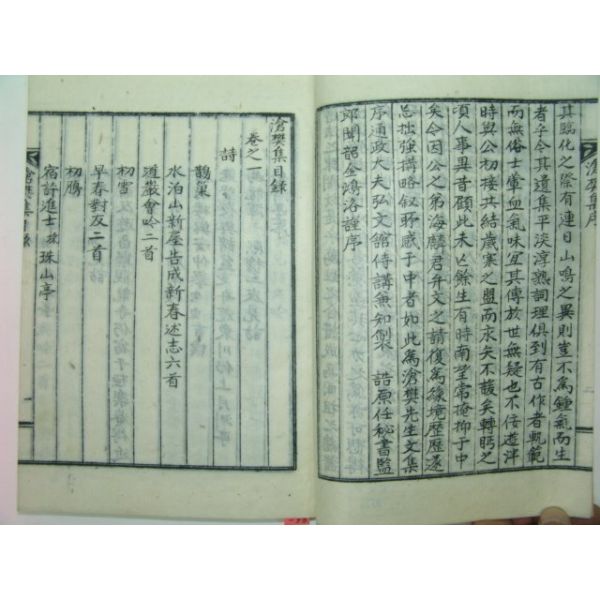 其臨化之際有連日山鳴之異則豈不爲鍾氣而生
者乎今其遺集平淡淳熟詞理俱到有古作者軌範
而無俗士葷血氣味宜其傳放世無疑也不佞遊泮
時與公切接共結歲寒之盟而永矢不諼矣轉眄之
頃人事異昔顧此未亡餘生有時南望常掩抑于中
矣今因公之弟海麟君弁文之請復爲緣境歷歷遂
忘拙強搆略叙所感于中者如此爲滄樊先生文集
序通政大夫弘文館侍講兼知製 誥原任秘書監
郎聞韶金鴻洛謹序
滄樊集序
一
滄樊集目錄
卷之一
詩
鵲巢
水泊山新屋告成新春述志六首
遯巖會吟二首
初雪
早春對友二首
初鴈
宿許進士 珠山亭
滄樊集目錄
一